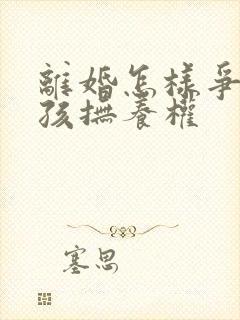 離婚怎樣爭
孩撫養權
塞思